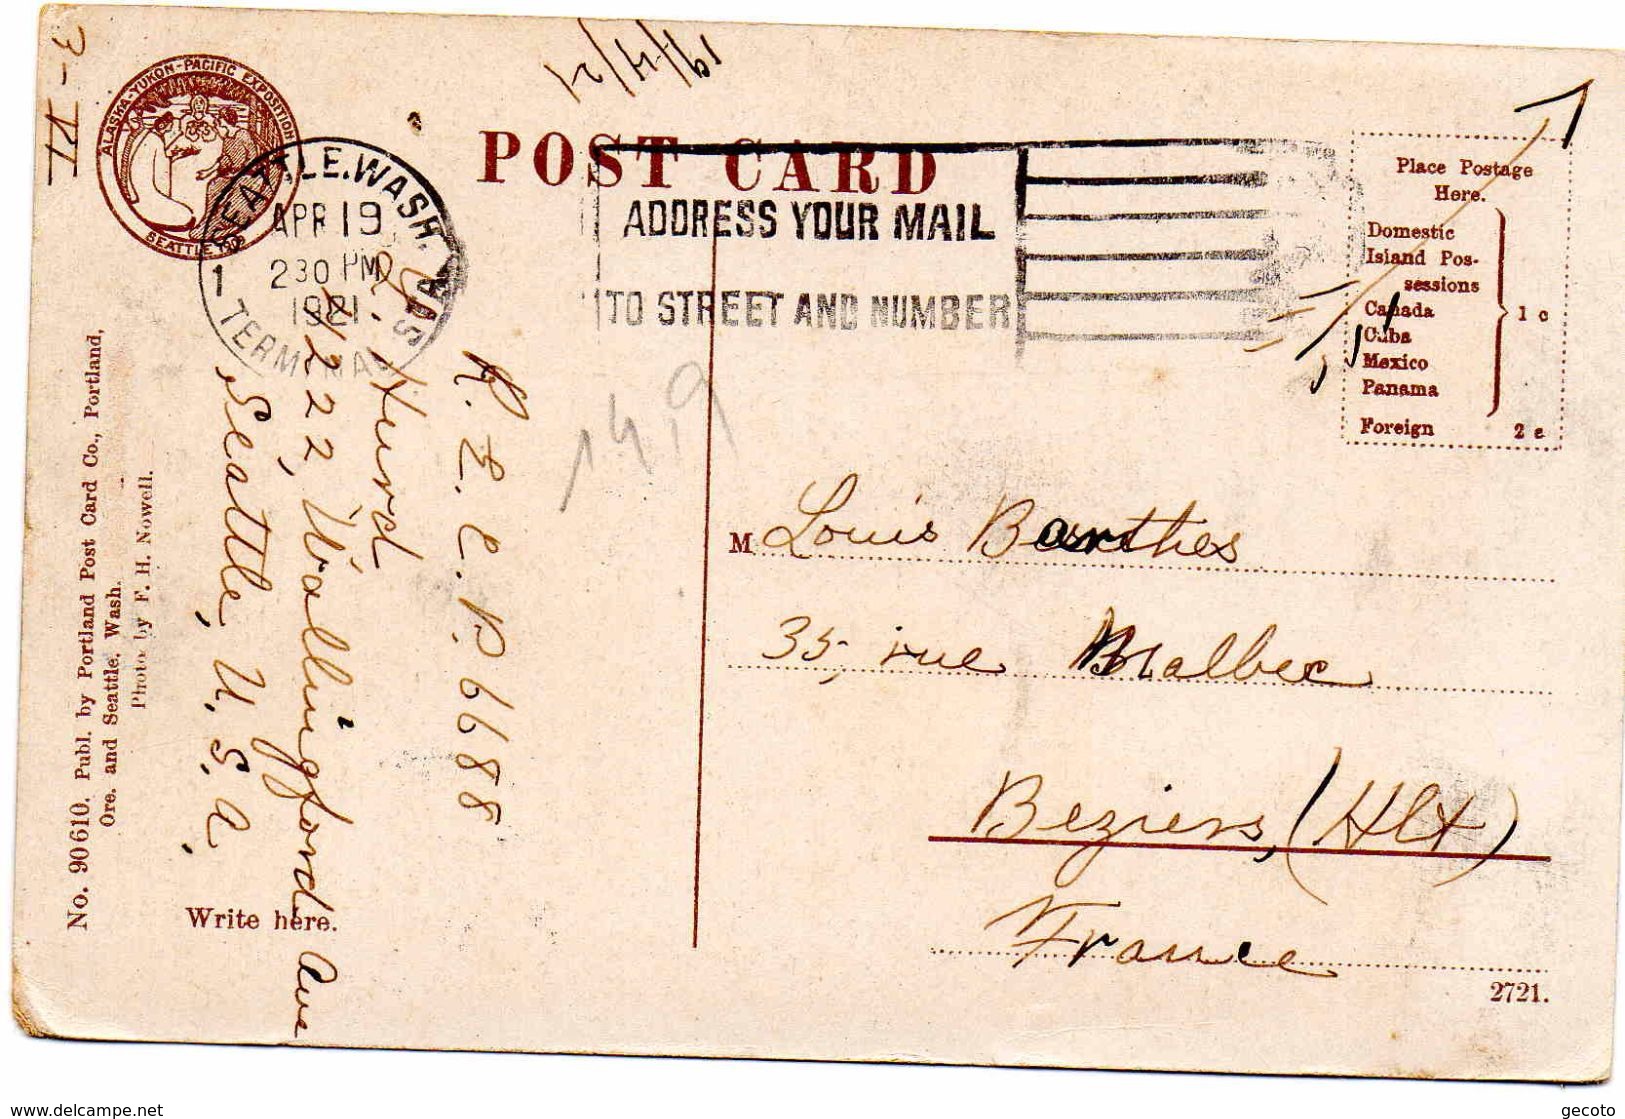 3-VI
19/4/21
ALASKA-YUKON-PACIFIC EXPOSITION
SEATTLE 1909
SEATTLE, WASH. USA
APR 19
230 PM
1921
TERMINAL
1
POST CARD
ADDRESS YOUR MAIL
TO STREET AND NUMBER
Place Postage
Here.
Domestic
Island Pos-
sessions
Canada
Cuba
Mexico
Panama
1 c
Foreign 2 c
R. E. C. P. 6688
Hurd
4222 Wallingford Ave
Seattle, U. S. A.
1419
M Louis Barthes
35, rue Malbec
Beziers, (Hlt)
France
Write here.
No. 90610. Publ. by Portland Post Card Co., Portland,
Ore. and Seattle, Wash.
Photo. by F. H. Nowell.
2721.
www.delcampe.net
gecoto